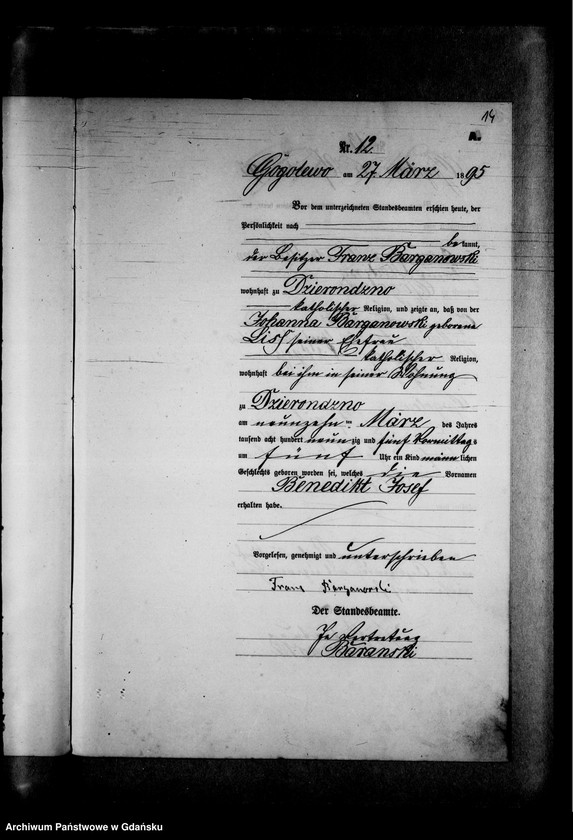 14
A.
Nr. 12.
Gogolewo am 27. März 1895
Vor dem unterzeichneten Standesbeamten erschien heute, der
Persönlichkeit nach
bekannt,
der Besitzer Franz Barganowski
wohnhaft zu Dzierondzno
katholischer Religion, und zeigte an, daß von der
Johanna Barganowski geborene
Liss seiner Ehefrau
katholischer Religion,
wohnhaft bei ihm in seiner Wohnung
zu Dzierondzno
am neunzehnten März des Jahres
tausend acht hundert neunzig und fünf Vormittags
um fünf Uhr ein Kind männlichen
Geschlechts geboren worden sei, welches die Vornamen
Benedikt Josef
erhalten habe.
Vorgelesen, genehmigt und unterschrieben
Franz Barganowski
Der Standesbeamte.
In Vertretung
Baranski
Archiwum Państwowe w Gdańsku